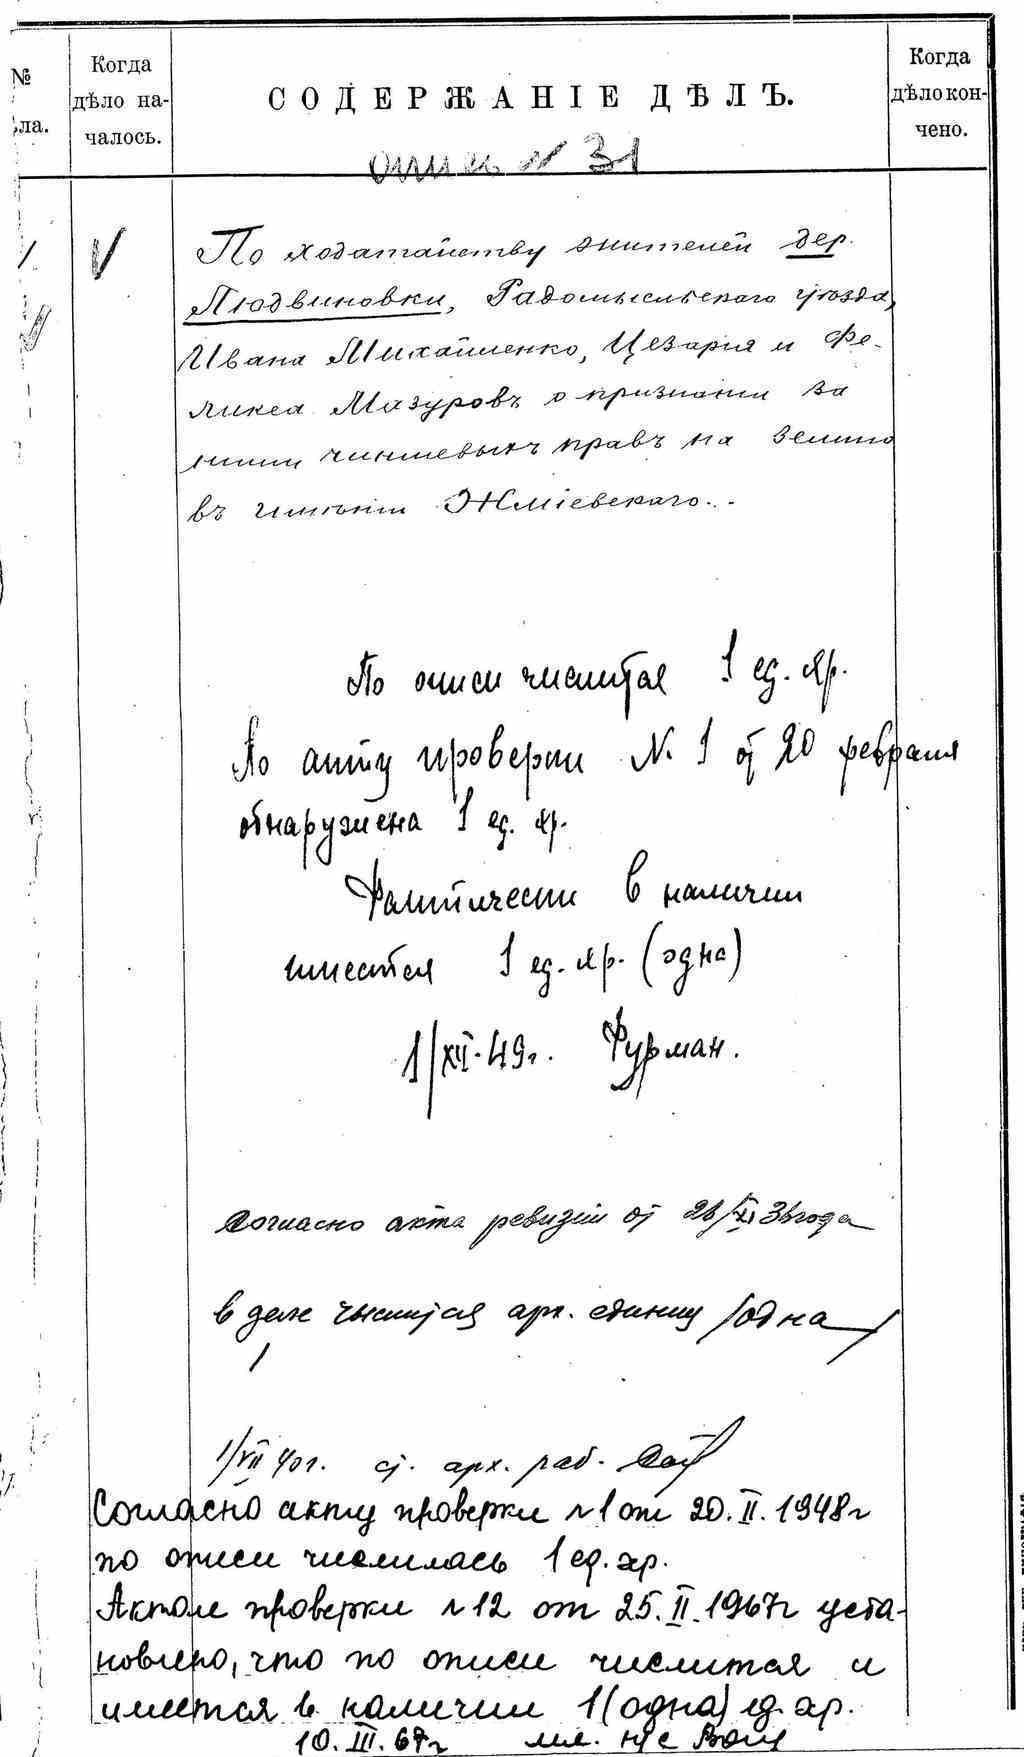 №
ла.
Когда
дѣло на-
чалось.
СОДЕРЖАНІЕ ДѢЛЪ.
Когда
дѣло кон-
чено.
опись № 31
1.
По ходатайству жителей дер.
Людвиновки, Радомысльскаго уѣзда,
Ивана Михайленко, Цезарія и Фе-
ликса Мазуровъ о признаніи за
ними чиншевыхъ правъ на землю
въ имѣніи Жміевскаго.
По описи числится 1 ед. хр.
По акту проверки № 1 от 20 февраля
обнаружена 1 ед. хр.
Фактически в наличии
имеется 1 ед. хр. (одна)
1/XII-49г. Фурман.
Согласно акта ревизіи от /XI года
в деле числится арх. единиц /одна/
1/VII 40г. ст. арх. раб.
Согласно акту проверки №1 от 20.II.1948г
по описи числилась 1 ед. хр.
Актом проверки №12 от 25.II.1967г уста-
новлено, что по описи числится и
имеется в наличии 1(одна) ед. хр.
10.III.67г мл. н/с